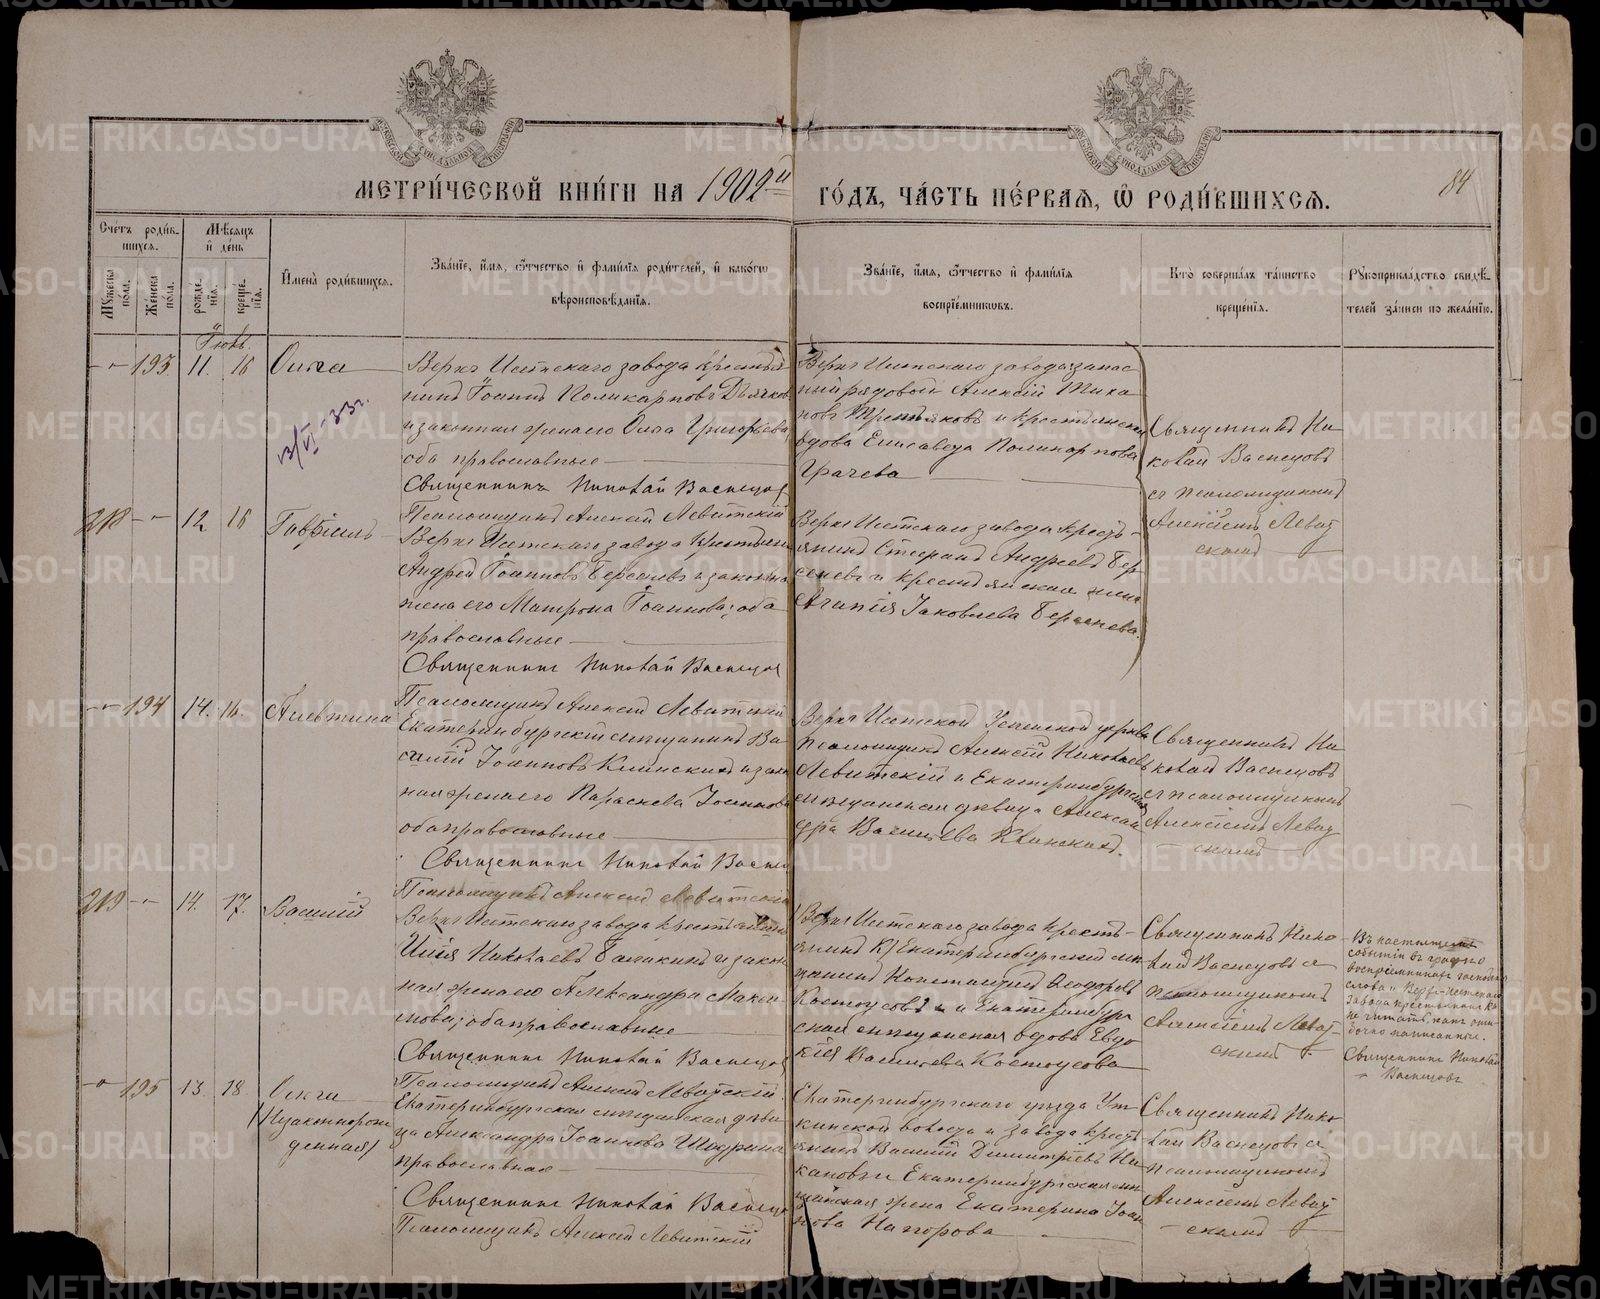 МЕТРИ́ЧЕСКОЙ КНИ́ГИ НА 1902й ГО́ДЪ, ЧА́СТЬ ПЕ́РВАѦ, Ѡ҆ РОДИ́ВШИХСѦ.
84
Сче́тъ роди́в-
шихсѧ.
Мѣ́сѧцъ
и҆ де́нь
Мꙋ́жеска по́ла.
Же́нска по́ла.
рожде́-
нїѧ.
креще́-
нїѧ.
И҆мена̀ роди́вшихсѧ.
Зва́нїе, и҆́мѧ, ѻ҆́тчество и҆ фами́лїѧ роди́телей, и҆ како́гѡ
вѣроисповѣ́данїѧ.
Зва́нїе, и҆́мѧ, ѻ҆́тчество и҆ фами́лїѧ
воспрїе́мникѡвъ.
Кто̀ соверша́лъ та́инство
креще́нїѧ.
Рꙋкоприкла́дство свидѣ́-
телей за́писи по жела́нїю.
Іюнь
193 11. 16 Ольга
Верхъ Исетскаго завода крестья
нинъ Іоаннъ Поликарповъ Дьячков
и законная жена его Ольга Григорьева,
оба православные
Священникъ Николай Васнецов
Псаломщикъ Алексей Левитскій
Верхъ Исетскаго завода запас
ный рядовой Алексій Тиха
новъ Третьяковъ и крестьянская
вдова Елисавета Поликарпова
Грачева
Священникъ Ни-
колай Васнецовъ
съ псаломщикомъ
Алексіемъ Левит
скимъ
13/VI-33г.
218 12 16 Гавріилъ
Верхъ Исетскаго завода крестьянин
Андрей Іоанновъ Берсеневъ и законная
жена его Матрона Іоаннова; оба
православные
Священникъ Николай Васнецов
Псаломщикъ Алексій Левитскій
Верхъ Исетскаго завода кресть-
янинъ Стефанъ Андреевъ Бер
сеневъ и крестьянская жена
Агапія Іаковлева Берсенева.
194 14. 16. Алевтина
Екатеринбургскій мещанинъ Ва
силій Іоанновъ Клинскихъ и закон
ная жена его Параскева Іоаннова
оба православные
Священникъ Николай Васнец
Псаломщикъ Алексій Левитскій
Верхъ Исетской Успенской церкви
псаломщикъ Алексій Николаевъ
Левитскій и Екатеринбургская
мещанская девица Алексан
дра Васильева Клинскихъ.
Священникъ Ни
колай Васнецовъ
съ псаломщикомъ
Алексіемъ Левит
скимъ
219 14. 17. Василій
Верхъ Исетскаго завода крестьянинъ
Илія Николаевъ Балакинъ и закон
ная жена его Александра Макси
мова; оба православные
Священникъ Николай Васнецов
Псаломщикъ Алексій Левитскій
Верхъ Исетскаго завода кресть-
янинъ К) Екатеринбургскій ме
щанинъ Константинъ Ѳеодоровъ
Костоусовъ и Екатеринбург
ская мещанская вдова Евдо
кія Васильева Костоусова
Священникъ Нико
лай Васнецовъ съ
псаломщикомъ
Алексіемъ Левит-
скимъ.
Въ настоящемъ
событіи въ графѣ о
воспріемникахъ
слова „Верхъ-Исетскаго
завода крестьянинъ К"
не читать, какъ оши
бочно написанные.
Священникъ Николай
Васнецовъ
195 13. 18 Ольга
(Незаконнорож
денная)
Екатеринбургская мещанская деви
ца Александра Іоаннова Шадрина
православная
Священникъ Николай Васнецо
Псаломщикъ Алексій Левитскій
Екатеринбургскаго уезда Ут
кинской волости и завода крест
янинъ Василій Димитріевъ Ни
кановъ и Екатеринбургская ме
щанская жена Екатерина Іоан
нова Напорова
Священникъ Нико
лай Васнецовъ съ
псаломщикомъ
Алексіемъ Левит
скимъ
METRIKI.GASO-URAL.RU